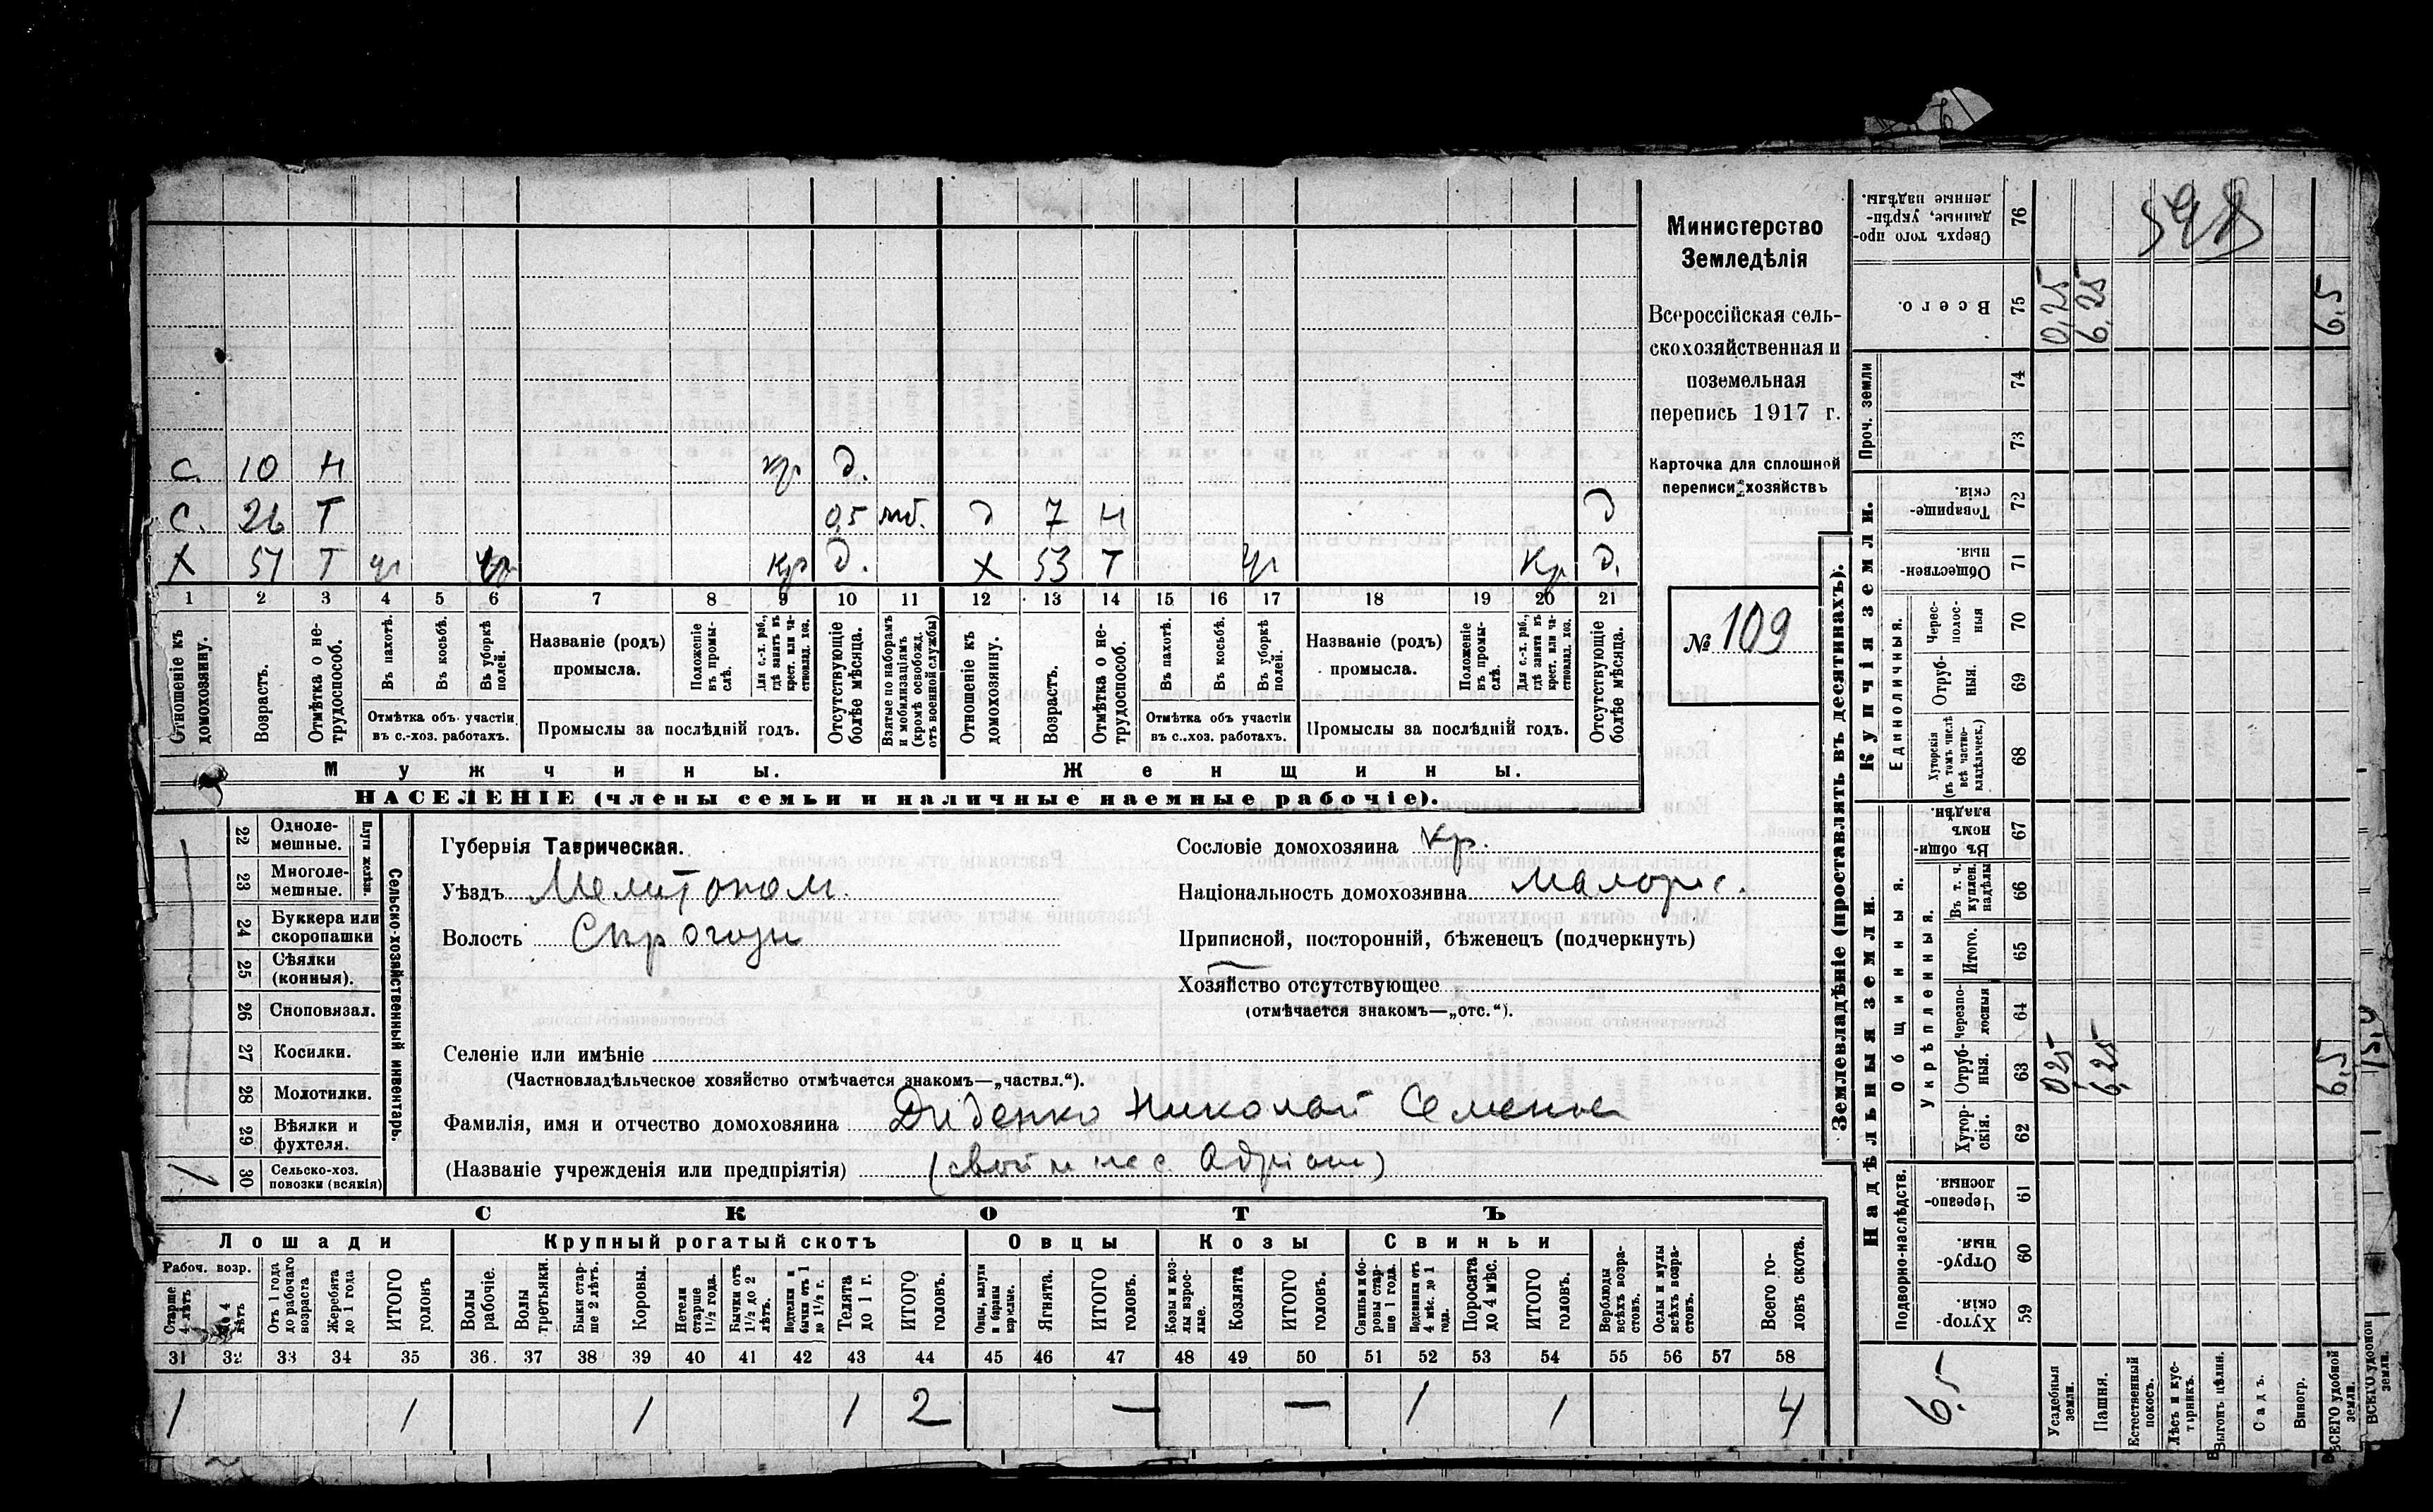 598
Министерство
Земледѣлія
Всероссійская сель-
скохозяйственная и
поземельная
перепись 1917 г.
Карточка для сплошной
переписи хозяйствъ
№ 109
С. 10 Н кр д.
С. 26 Т 0,5 мб. д 7 Н д
Х 51 Т чг Кр д. Х 53 Т чг Кр д.
1 2 3 4 5 6 7 8 9 10 11 12 13 14 15 16 17 18 19 20 21
Отношеніе къ домохозяину.
Возрастъ.
Отмѣтка о не-трудоспособ.
Въ пахотѣ.
Въ косьбѣ.
Въ уборкѣ полей.
Отмѣтка объ участіи
въ с.-хоз. работахъ.
Названіе (родъ)
промысла.
Положеніе въ промы-слѣ.
Для с.-х. раб., гдѣ занятъ въ крест. или ча-стновлад. хоз.
Промыслы за послѣдній годъ.
Отсутствующіе болѣе мѣсяца.
Взятые по наборамъ и мобилизаціямъ (кромѣ освобожд. отъ военной службы)
Отношеніе къ домохозяину.
Возрастъ.
Отмѣтка о не-трудоспособ.
Въ пахотѣ.
Въ косьбѣ.
Въ уборкѣ полей.
Отмѣтка объ участіи
въ с.-хоз. работахъ.
Названіе (родъ)
промысла.
Положеніе въ промы-слѣ.
Для с.-х. раб., гдѣ занятъ въ крест. или ча-стновлад. хоз.
Промыслы за послѣдній годъ.
Отсутствующіе болѣе мѣсяца.
Мужчины. Женщины.
НАСЕЛЕНІЕ (члены семьи и наличные наемные рабочіе).
Сельско-хозяйственный инвентарь.
Плуги желѣзн.
22 Одноле-мешные.
23 Многоле-мешные.
24 Буккера или скоропашки
25 Сѣялки (конныя).
26 Сноповязал.
27 Косилки.
28 Молотилки.
29 Вѣялки и фухтеля.
30 Сельско-хоз. повозки (всякія) 1
Губернія Таврическая.
Уѣздъ Мелитопол.
Волость
Сословіе домохозяина кр.
Національность домохозяина Малорос.
Приписной, посторонній, бѣженецъ (подчеркнуть)
Хозяйство отсутствующее
(отмѣчается знакомъ—„отс.“).
Селеніе или имѣніе
(Частновладѣльческое хозяйство отмѣчается знакомъ—„частвл.“).
Фамилія, имя и отчество домохозяина Диденко Николай Семенов
(Названіе учрежденія или предпріятія)
СКОТЪ
Лошади Крупный рогатый скотъ Овцы Козы Свиньи
Рабоч. возр.
Старше 4 лѣтъ
До 4 лѣтъ
Отъ 1 года до рабочаго возраста
Жеребята до 1 года
ИТОГО головъ
Волы рабочіе.
Волы третьяки.
Быки стар-ше 2 лѣтъ.
Коровы.
Нетели старше 1½ года.
Бычки отъ 1½ до 2 лѣтъ.
Подтелки и бычки отъ 1 до 1½ г.
Телята до 1 г.
ИТОГО головъ.
Овцы, валухи и бараны взрослые.
Ягнята.
ИТОГО головъ.
Козы и коз-лы взрос-лые.
Козлята
ИТОГО головъ.
Свиньи и бо-ровы стар-ше 1 года.
Подсвинки отъ 4 мѣс. до 1 года.
Поросята до 4 мѣс.
ИТОГО головъ.
Верблюды всѣхъ возра-стовъ.
Ослы и мулы всѣхъ возра-стовъ.
Всего го-ловъ скота.
31 32 33 34 35 36 37 38 39 40 41 42 43 44 45 46 47 48 49 50 51 52 53 54 55 56 57 58
1 1 1 1 2 — — 1 1 4
Землевладѣніе (проставлять въ десятинахъ).
Надѣльныя земли. Купчія земли.
Подворно-наслѣдств.
Общинныя.
Укрѣпленныя.
Единоличныя.
Проч. земли
59 Хутор-скія
60 Отруб-ныя.
61 Черезпо-лосныя
62 Хутор-скія.
63 Отруб-ныя. 0,25 6,25 6,5
64 Черезпо-лосныя
65 Итого.
66 Въ т. ч. куплен. надѣлы
67 Въ общин-номъ владѣн.
68 Хуторскія (въ томъ числѣ всѣ частно-владѣльческ.)
69 Отруб-ныя.
70 Черес-полос-ныя
71 Обществен-ныя
72 Товарище-скія.
73
74
75 Всего. 0,25 6,25 6,5
76 Сверхъ того про-данные, укрѣп-ленные надѣлы.
6,5
Усадебныя земли.
Пашня.
Естественный покосъ.
Лѣсъ и кус-тарникъ.
Выгонъ цѣлин.
Садъ.
Виногр.
ВСЕГО удобной земли.
ВСЕГО удобной земли.